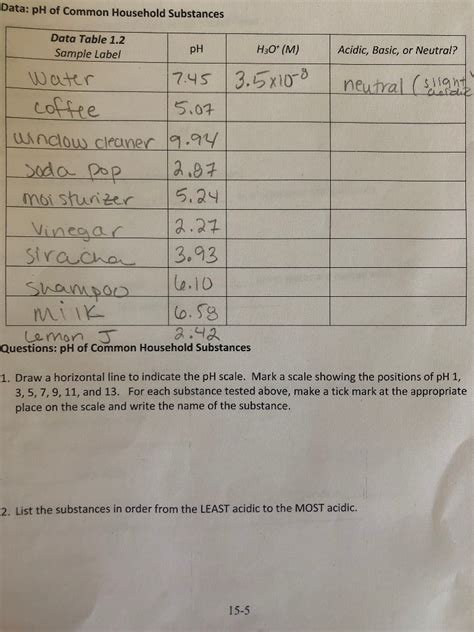 Data: pH of Common Household Substances
Data Table 1.2
Sample Label pH H₃O⁺ (M) Acidic, Basic, or Neutral?
Water 7.45 3.5x10⁻⁸ neutral (slight
coffee 5.07
window cleaner 9.94
Soda pop 2.87
moisturizer 5.24
Vinegar 2.27
Siracha 3.93
Shampoo 6.10
milk 6.58
Lemon J 2.42
Questions: pH of Common Household Substances
1. Draw a horizontal line to indicate the pH scale. Mark a scale showing the positions of pH 1,
3, 5, 7, 9, 11, and 13. For each substance tested above, make a tick mark at the appropriate
place on the scale and write the name of the substance.
2. List the substances in order from the LEAST acidic to the MOST acidic.
15-5